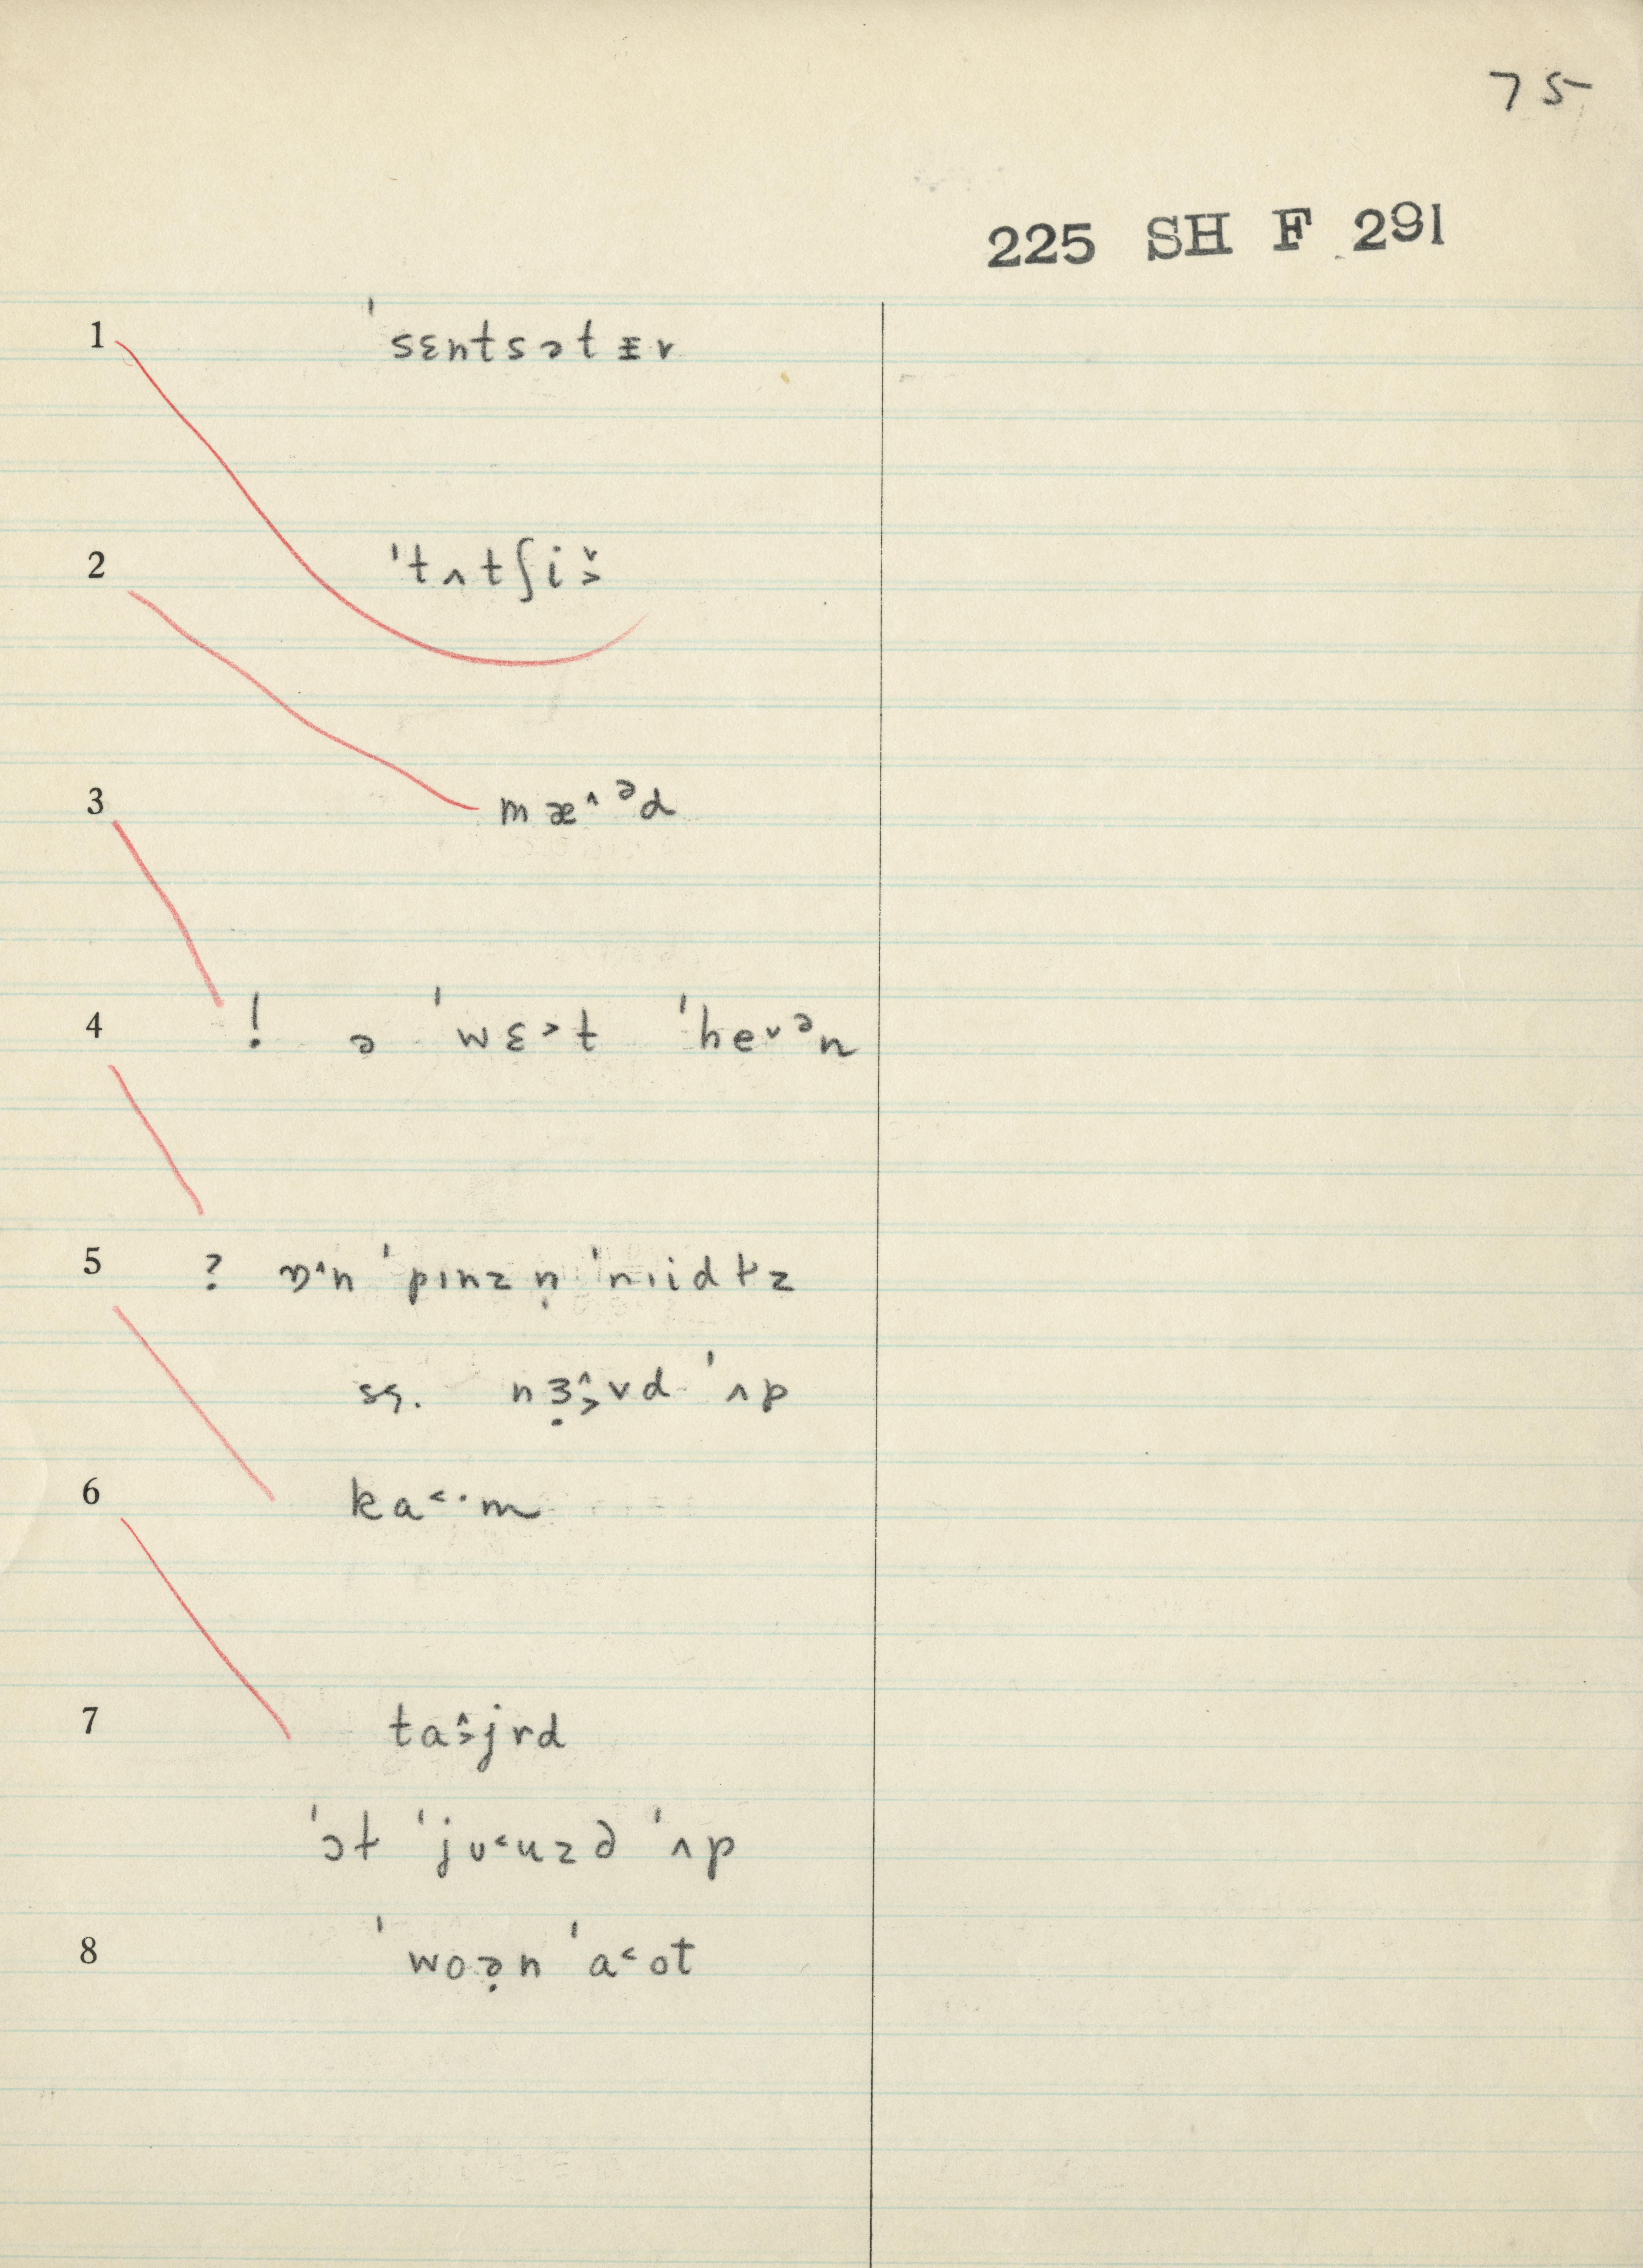 75
225 SH F 291
1 ˈsɛntsətɪ̵v
2 ˈtʌtʃi˃̌
3 mæ^ᵊd
4 ! ə ˈwɛ˃t ˈhe˅ᵊn
5 ? ɒ^n ˈpɪnz n̩ ˈnɪidɫz
sg. nɜ̣˃̂vd ˈʌp
6 ka˂·m
7 ta˃̂jrd
ˈɔt ˈjʊ˂uzd ˈʌp
8 ˈwoə̣n ˈa˂ot